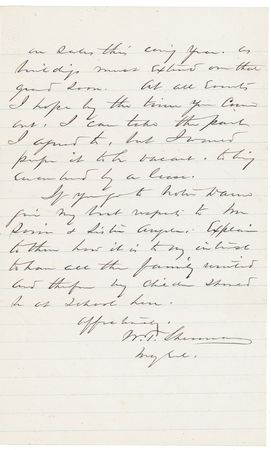 on Sales this coming Year. as
buildings must Extend on that
ground soon. At all Events
I hope by the time you Come
out, I can take the part
I agreed to, but I would
prefer it to be vacant, to being
encumbered by a lease.
If you go to Notre Dame
give my best respects to Mr
Sorin & Sister Angela. Explain
to them how it is to my interest
to have all the family united
and therefore my Children should
be at School here.
Affectionately,
W. T. Sherman